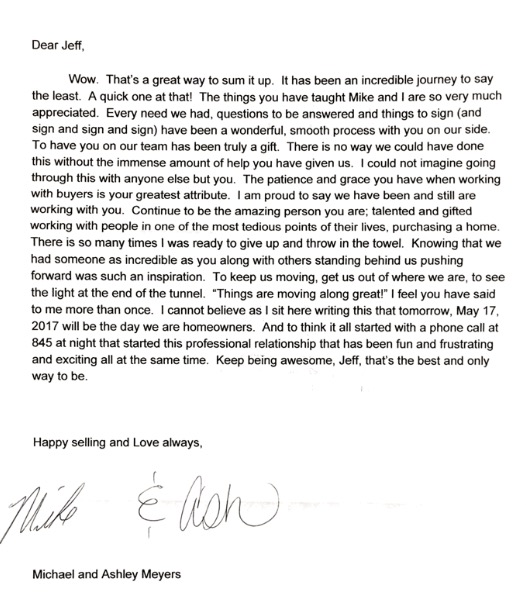 Dear Jeff,
Wow. That's a great way to sum it up. It has been an incredible journey to say
the least. A quick one at that! The things you have taught Mike and I are so very much
appreciated. Every need we had, questions to be answered and things to sign (and
sign and sign and sign) have been a wonderful, smooth process with you on our side.
To have you on our team has been truly a gift. There is no way we could have done
this without the immense amount of help you have given us. I could not imagine going
through this with anyone else but you. The patience and grace you have when working
with buyers is your greatest attribute. I am proud to say we have been and still are
working with you. Continue to be the amazing person you are; talented and gifted
working with people in one of the most tedious points of their lives, purchasing a home.
There is so many times I was ready to give up and throw in the towel. Knowing that we
had someone as incredible as you along with others standing behind us pushing
forward was such an inspiration. To keep us moving, get us out of where we are, to see
the light at the end of the tunnel. "Things are moving along great!" I feel you have said
to me more than once. I cannot believe as I sit here writing this that tomorrow, May 17,
2017 will be the day we are homeowners. And to think it all started with a phone call at
845 at night that started this professional relationship that has been fun and frustrating
and exciting all at the same time. Keep being awesome, Jeff, that's the best and only
way to be.
Happy selling and Love always,
Mike & Ash
Michael and Ashley Meyers